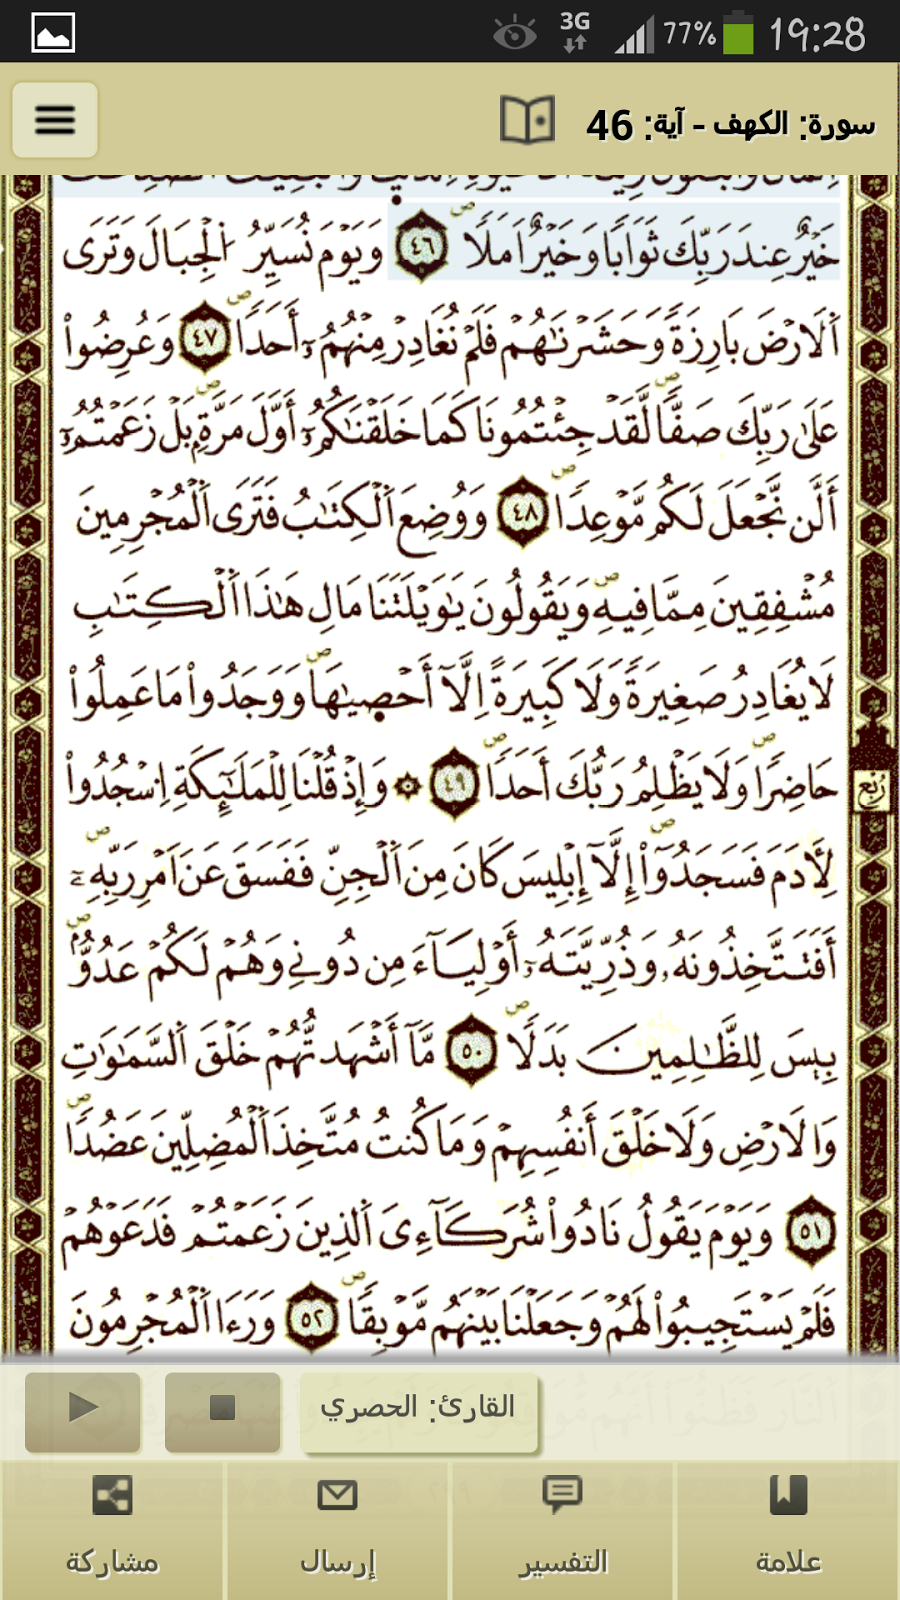 3G 77% 19:28
سورة: الكهف - آية: 46
خَيْرٌ عِندَ رَبِّكَ ثَوَابًا وَخَيْرٌ اَمَلًا ٤٦ وَيَوْمَ نُسَيِّرُ اُلْجِبَالَ وَتَرَى
اَلَارْضَ بَارِزَةً وَحَشَرْنَٰهُمْ فَلَمْ نُغَادِرْ مِنْهُمُۥٓ أَحَدًا ٤٧ وَعُرِضُوا۟
عَلَىٰ رَبِّكَ صَفًّا لَّقَدْ جِئْتُمُونَا كَمَا خَلَقْنَٰكُمُۥٓ أَوَّلَ مَرَّةِۢ بَلْ زَعَمْتُمُۥٓ
أَلَّن نَّجْعَلَ لَكُم مَّوْعِدًا ٤٨ وَوُضِعَ اَلْكِتَٰبُ فَتَرَى اَلْمُجْرِمِينَ
مُشْفِقِينَ مِمَّا فِيهِ وَيَقُولُونَ يَٰوَيْلَتَنَا مَالِ هَٰذَا اَلْكِتَٰبِ
لَا يُغَادِرُ صَغِيرَةً وَلَا كَبِيرَةً اِلَّآ أَحْصَيٰهَا وَوَجَدُوا۟ مَا عَمِلُوا۟
حَاضِرًا وَلَا يَظْلِمُ رَبُّكَ أَحَدًا ٤٩ ۞ وَإِذْ قُلْنَا لِلْمَلَٰٓئِكَةِ اِسْجُدُوا۟
رُبْع
لِأٓدَمَ فَسَجَدُوٓا۟ إِلَّآ إِبْلِيسَ كَانَ مِنَ اَلْجِنِّ فَفَسَقَ عَنَ اَمْرِ رَبِّهِۦٓ
أَفَتَتَّخِذُونَهُۥ وَذُرِّيَّتَهُۥٓ أَوْلِيَآءَ مِن دُونِے وَهُمْ لَكُمْ عَدُوُّۢ
بِيسَ لِلظَّٰلِمِينَ بَدَلًا ٥٠ مَّآ أَشْهَدتُّهُمْ خَلْقَ اَلسَّمَٰوَٰتِ
وَالَارْضِ وَلَا خَلْقَ أَنفُسِهِمْ وَمَا كُنتُ مُتَّخِذَ اَلْمُضِلِّينَ عَضُدًا
٥١ وَيَوْمَ يَقُولُ نَادُوا۟ شُرَكَآءِىَ اَلذِينَ زَعَمْتُمْ فَدَعَوْهُمْ
فَلَمْ يَسْتَجِيبُوا۟ لَهُمْ وَجَعَلْنَا بَيْنَهُم مَّوْبِقًا ٥٢ وَرَءَا اَلْمُجْرِمُونَ
القارئ: الحصري
علامة
التفسير
إرسال
مشاركة